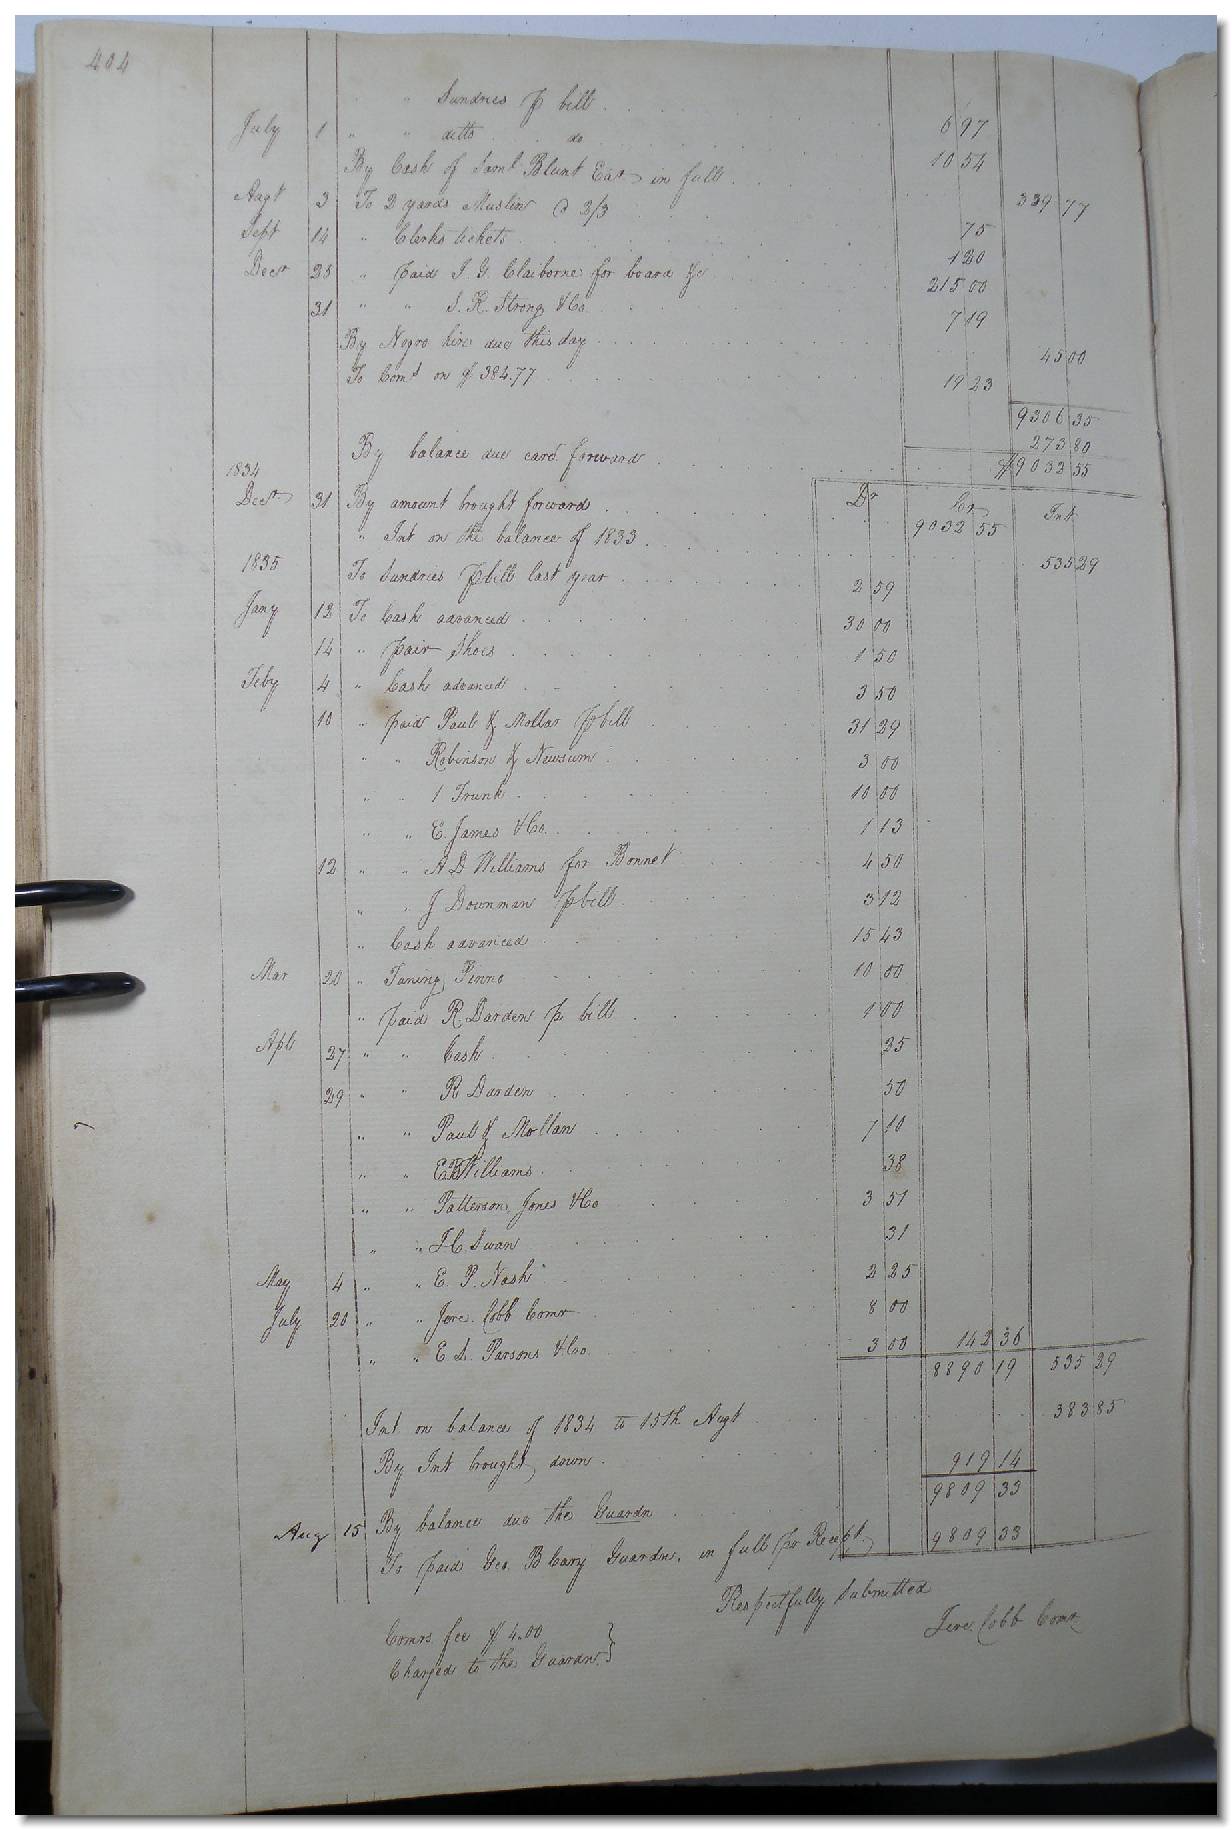 404
" Sundries p bill 6 97
July 1 " " ditto do 10 54
By Cash of Saml Blunt Exr in full 339 77
Augt 3 To 2 yards Muslin @ 2/3 75
Sept 14 " Clerks tickets 1 20
Decr 28 " paid J. G. Claiborne for board &c 215 00
31 " " S. R. Strong & Co 7 19
By Negro hire due this day 45 00
To Coms on $ 384.77 19 23
9306 35
273 80
By balance due card. forward $9032 55
1834 Dr Cr Int
Decr 31 By amount brought forward 9032 55
" Int on the balance of 1833 535 29
1835 To Sundries p bill last year 2 59
Jany 12 To Cash advanced 30 00
14 " pair Shoes 1 50
Feby 4 " Cash advanced 3 50
10 " paid Paul & Mollan p bill 31 29
" " Robinson & Newsum 3 00
" " 1 Trunk 10 00
" " E. James & Co. 1 13
12 " " A D Williams for Bonnet 4 50
" " J Downman p bill 3 12
" Cash advanced 15 43
Mar 20 " Tuning Pinno 10 00
" paid R Darden p bill 1 00
Apl 27 " " Cash 25
29 " " R Darden 50
" " Paul & Mollan 1 10
" " Williams 38
" " Patterson, Jones & Co 3 51
" " Swan 31
May 4 " " E. P. Nash 2 25
July 20 " " Jere. Cobb Comr 8 00
" " E. L. Parsons & Co. 3 00 142 36
8890 19 535 29
Int. on balance of 1834 to 15th Augt 383 85
By Int brought down 919 14
9809 33
Aug 15 By balance due the Guardn
To paid Geo. B Cary Guardn. in full pr Recept. 9809 33
Respectfully submitted
Jere. Cobb Comr
Comrs. fee $ 4.00
Charged to the Guardn. }